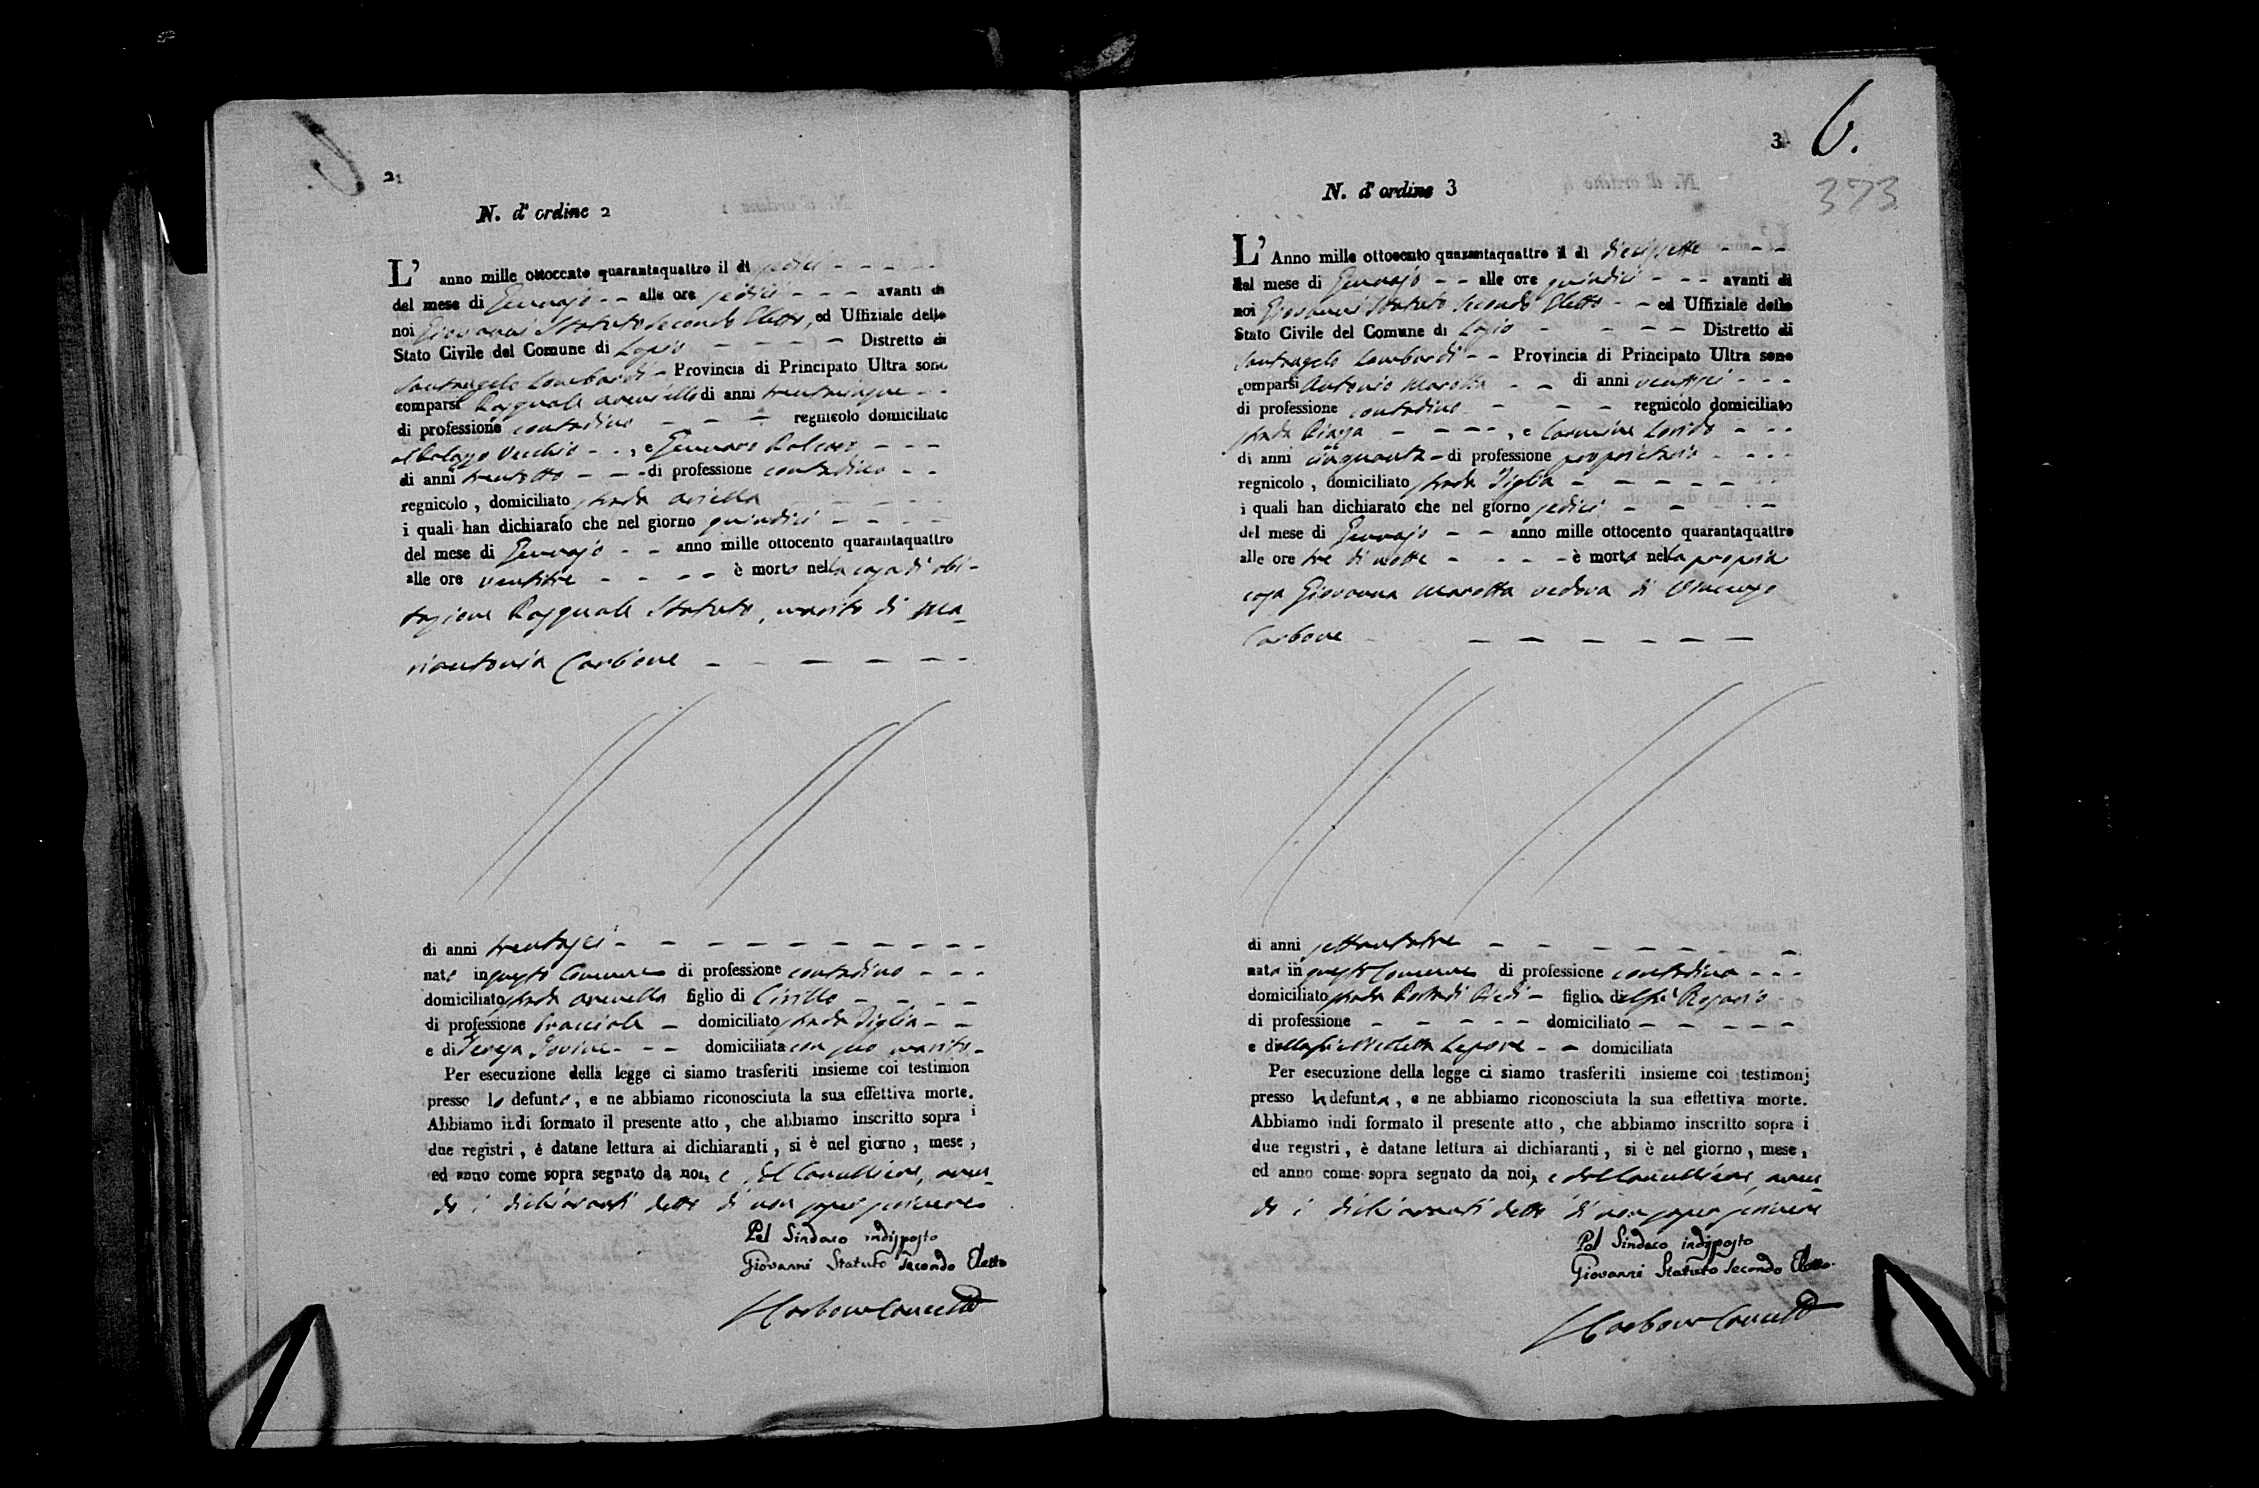 2
N. d' ordine 2
L' anno mille ottocento quarantaquattro il di sedici
del mese di Gennajo alle ore sedici avanti di
noi Giovanni Statuto Secondo Eletto, ed Uffiziale dello
Stato Civile del Comune di Lapio Distretto di
Santangelo Lombardi Provincia di Principato Ultra sono
comparsi Pasquale di anni trentacinque
di professione contadino regnicolo domiciliato
al Palazzo Vecchio, e Gennaro
di anni trentotto di professione contadino
regnicolo, domiciliato strada
i quali han dichiarato che nel giorno quindici
del mese di Gennajo anno mille ottocento quarantaquattro
alle ore ventitre è morto nella casa di abi-
tazione Pasquale Statuto, marito di Ma-
riantonia Carbone
di anni trentasei
nato in questo Comune di professione contadino
domiciliato strada figlio di Cirillo
di professione bracciale domiciliato strada Tiglia
e di Teresa Iovine domiciliata con suo marito
Per esecuzione della legge ci siamo trasferiti insieme coi testimon
presso lo defunto, e ne abbiamo riconosciuta la sua effettiva morte.
Abbiamo indi formato il presente atto, che abbiamo inscritto sopra i
due registri, è datane lettura ai dichiaranti, si è nel giorno, mese,
ed anno come sopra segnato da noi, e dal Cancelliere, aven-
do i dichiaranti detto di non saper scrivere
Pel Sindaco indisposto
Giovanni Statuto Secondo Eletto
3
6.
373
N. d' ordine 3
L' Anno mille ottocento quarantaquattro il di diecisette
del mese di Gennajo alle ore quindici avanti di
noi Giovanni Statuto Secondo Eletto ed Uffiziale dello
Stato Civile del Comune di Lapio Distretto di
Santangelo Lombardi Provincia di Principato Ultra sono
comparsi Antonio Marotta di anni ventisei
di professione contadino regnicolo domiciliato
strada Piazza, e Carmine
di anni cinquanta di professione proprietario
regnicolo, domiciliato strada Tiglia
i quali han dichiarato che nel giorno sedici
del mese di Gennajo anno mille ottocento quarantaquattro
alle ore tre di notte è morta nella propria
casa Giovanna Marotta vedova di Vincenzo
Carbone
di anni settantatre
nata in questo Comune di professione contadina
domiciliato strada Piedi figlia di Rosario
di professione domiciliato
e della fu Nicoletta Lepore domiciliata
Per esecuzione della legge ci siamo trasferiti insieme coi testimonj
presso la defunta, e ne abbiamo riconosciuta la sua effettiva morte.
Abbiamo indi formato il presente atto, che abbiamo inscritto sopra i
due registri, è datane lettura ai dichiaranti, si è nel giorno, mese,
ed anno come sopra segnato da noi, e dal Cancelliere, aven-
do i dichiaranti detto di non saper scrivere
Pel Sindaco indisposto
Giovanni Statuto Secondo Eletto